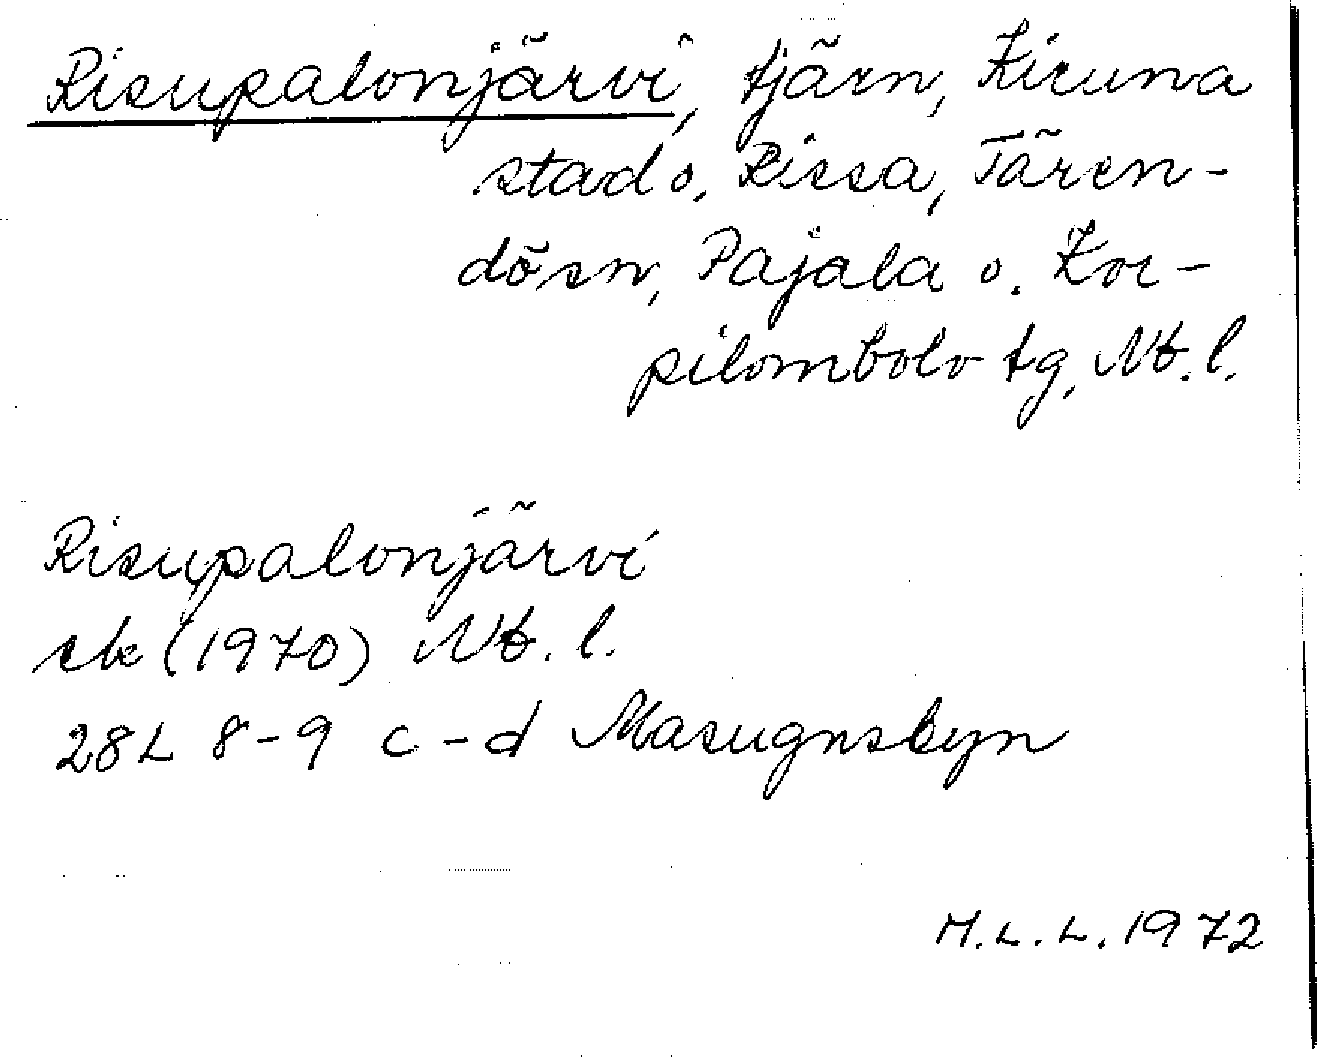 Risupalonjärvi, tjärn, Kiruna
stad o. Rissa, Tären-
dö sn, Pajala o. Kor-
pilombolo tg, Nb. l.
Risupalonjärvi
ek (1970) Nb. l.
28L 8-9 c-d Masugnsbyn
M.L.L. 1972